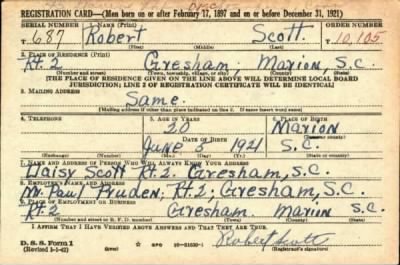 REGISTRATION CARD—(Men born on or after February 17, 1897 and on or before December 31, 1921)
SERIAL NUMBER 1. NAME (Print) ORDER NUMBER
T 687 Robert Scott. T 10,105
(First) (Middle) (Last)
2. PLACE OF RESIDENCE (Print)
Rt. 2 Gresham; Marion, S.C.
(Number and street) (Town, township, village, or city) (County) (State)
[THE PLACE OF RESIDENCE GIVEN ON THE LINE ABOVE WILL DETERMINE LOCAL BOARD
JURISDICTION; LINE 2 OF REGISTRATION CERTIFICATE WILL BE IDENTICAL]
3. MAILING ADDRESS
Same.
[Mailing address if other than place indicated on line 2. If same insert word same]
4. TELEPHONE 5. AGE IN YEARS 6. PLACE OF BIRTH
20 Marion
DATE OF BIRTH (Town or county)
June 5 1921 S.C.
(Exchange) (Number) (Mo.) (Day) (Yr.) (State or country)
7. NAME AND ADDRESS OF PERSON WHO WILL ALWAYS KNOW YOUR ADDRESS
Daisy Scott Rt. 2. Gresham, S.C.
8. EMPLOYER'S NAME AND ADDRESS
Mr. Paul Pruden; Rt. 2; Gresham, S.C.
9. PLACE OF EMPLOYMENT OR BUSINESS
Rt. 2 Gresham. Marion S.C.
(Number and street or R. F. D. number) (Town) (County) (State)
I AFFIRM THAT I HAVE VERIFIED ABOVE ANSWERS AND THAT THEY ARE TRUE.
D. S. S. Form 1 (over) GPO 16—21630-1 Robert Scott
(Revised 1-1-42) (Registrant's signature)